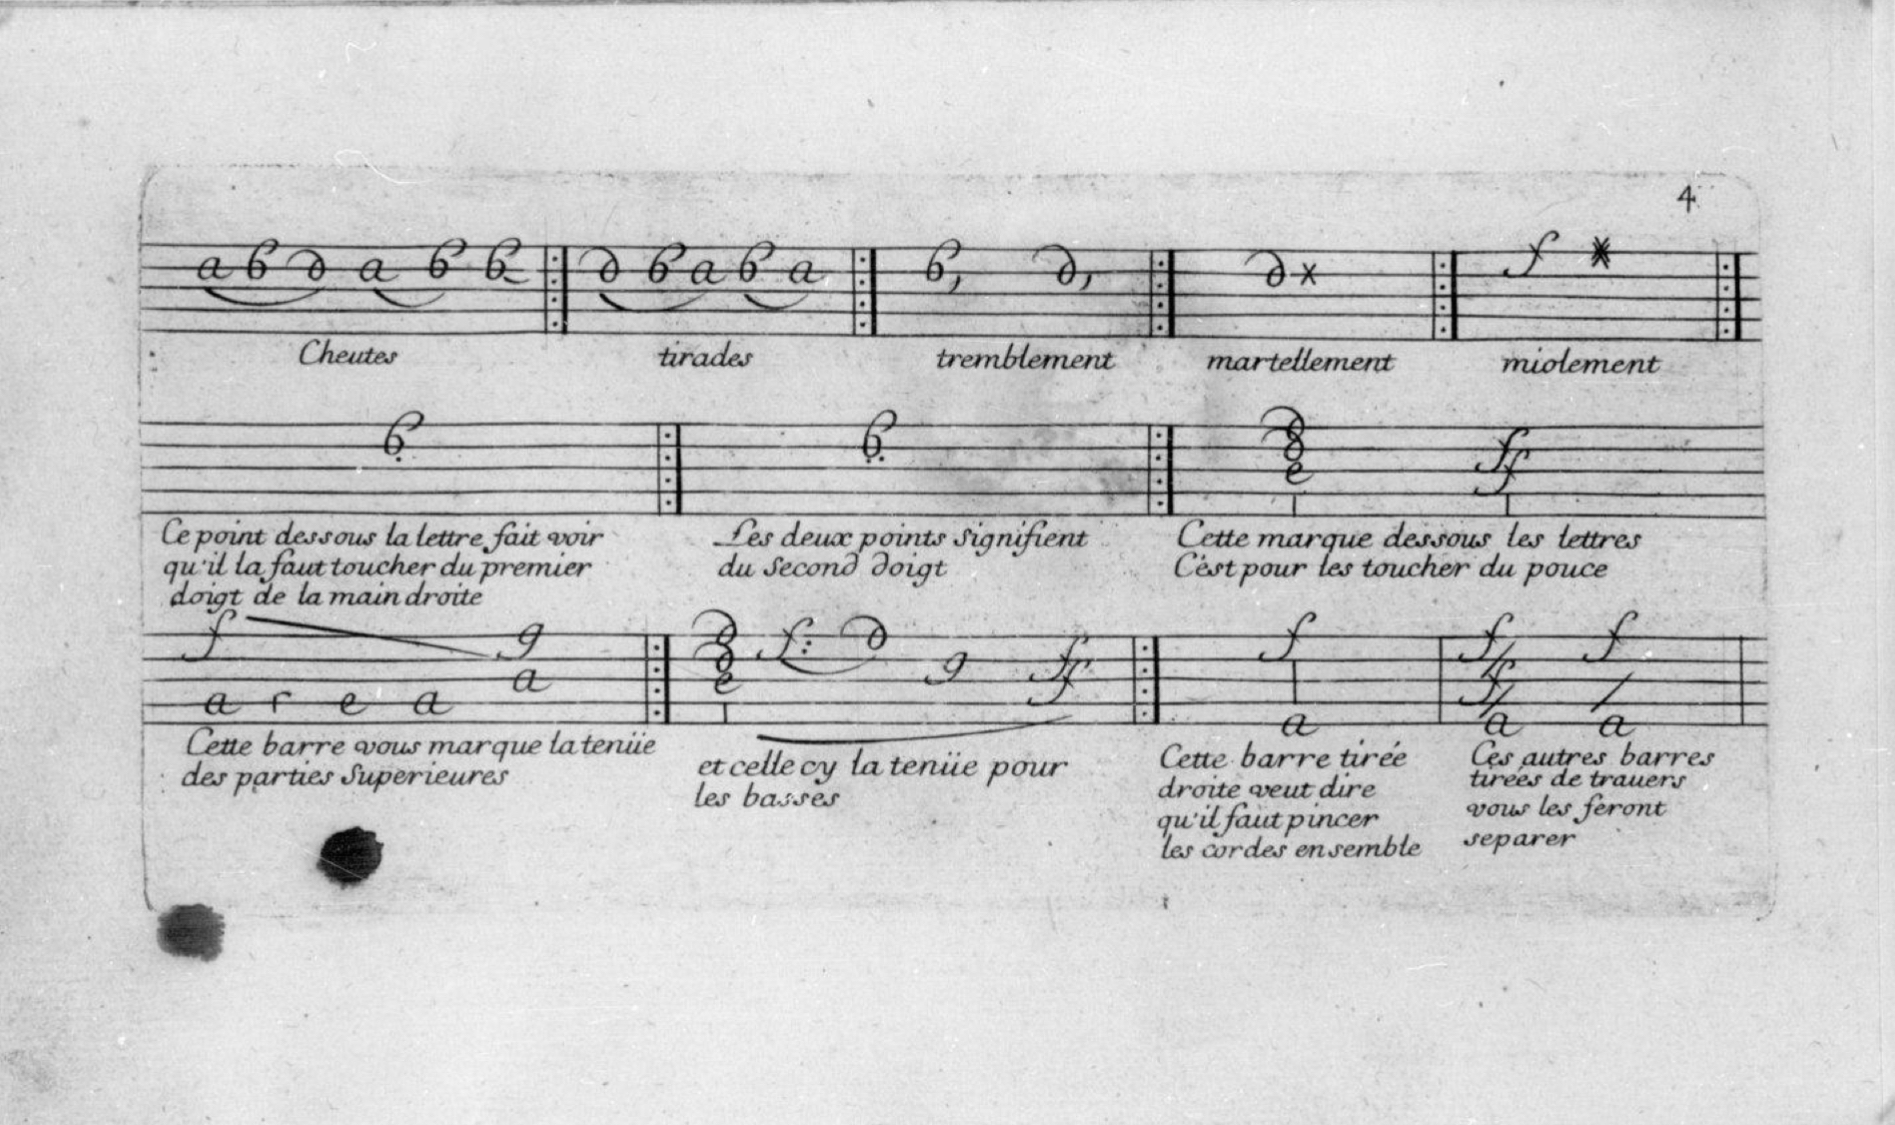 4
a b d a b b d b a b a b, d, d x f *
Cheutes tirades tremblement martellement miolement
b b d d e f f
Ce point dessous la lettre fait voir
qu'il la faut toucher du premier
doigt de la main droite
Les deux points Signifient
du Second doigt
Cette marque dessous les lettres
C'est pour les toucher du pouce
f g
a r e a a
Cette barre vous marque la tenüe
des parties Superieures
d d e f: d g f f
et celle cy la tenüe pour
les basses
f
a
Cette barre tirée
droite veut dire
qu'il faut pincer
les cordes ensemble
f f f f
a a
Ces autres barres
tirées de trauers
vous les feront
separer